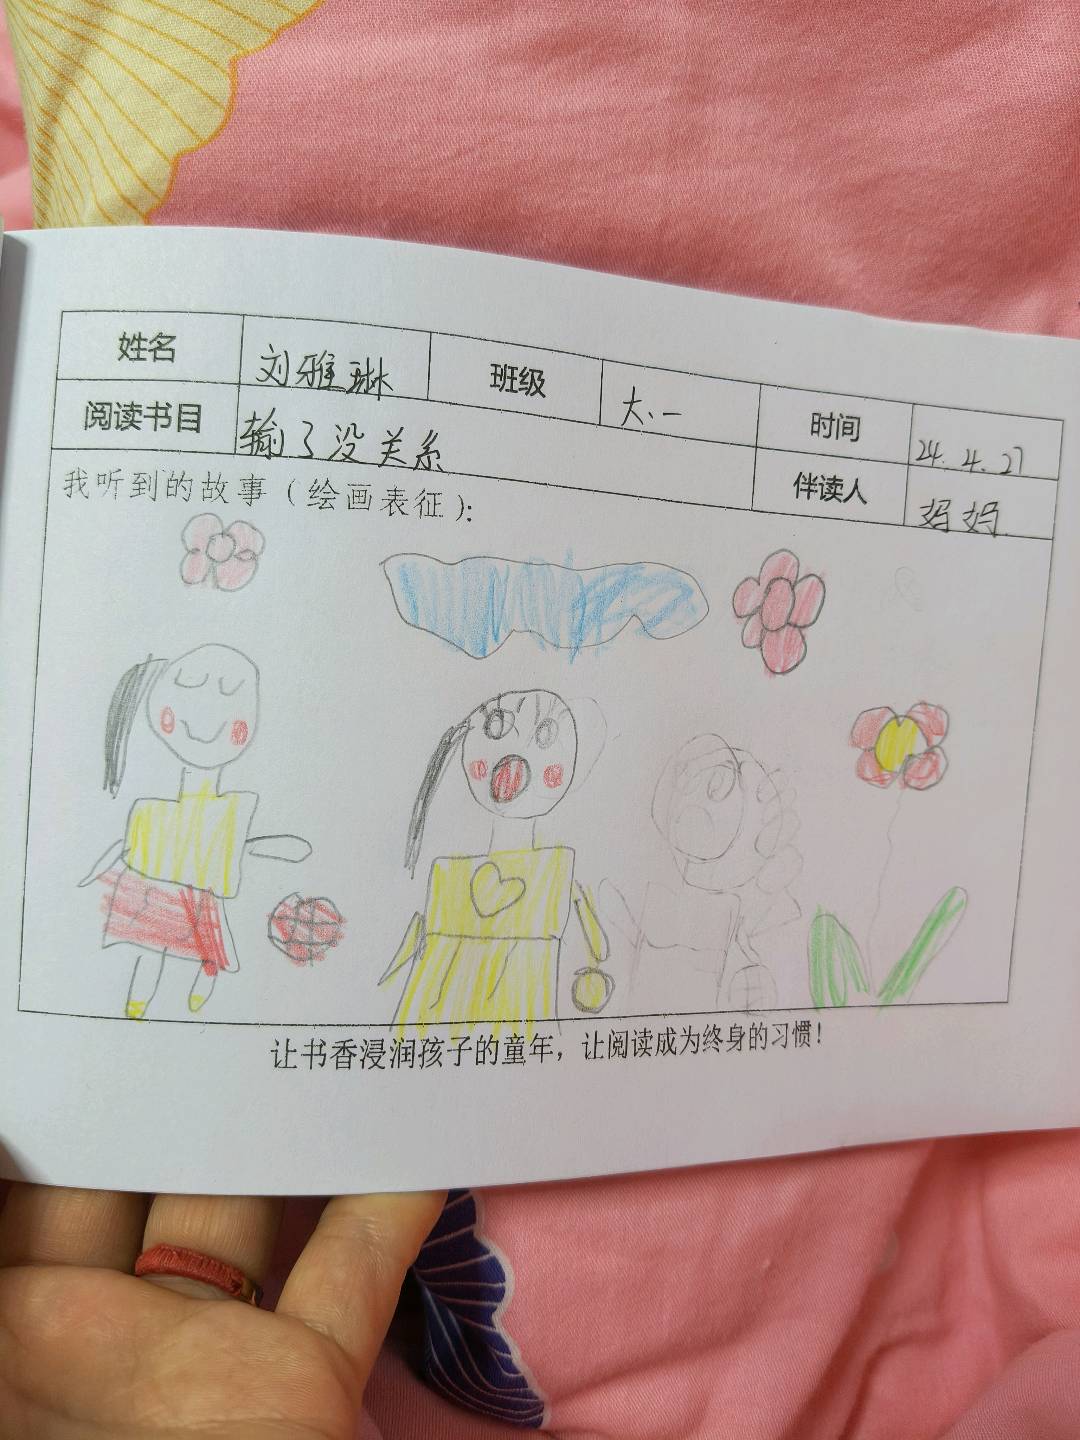 姓名 刘雅琳 班级 大一 时间 24.4.27
阅读书目 输了没关系 伴读人 妈妈
我听到的故事（绘画表征）：
让书香浸润孩子的童年，让阅读成为终身的习惯！